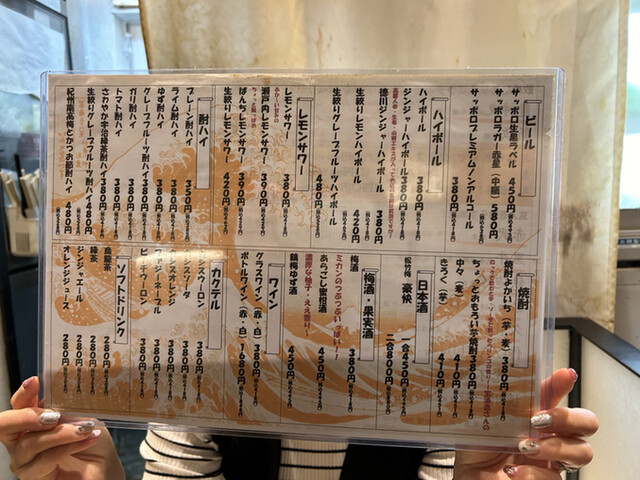 ビール
サッポロ生黒ラベル 450円
サッポロラガー赤星（中瓶） 580円
サッポロプレミアムノンアルコール 380円
ハイボール
ハイボール 380円
ジンジャーハイボール 380円
徳川ジンジャーハイボール 380円
生絞りレモンハイボール 420円
生絞りグレープフルーツハイボール 480円
レモンサワー
レモンサワー 380円
瀬戸内レモンサワー 390円
ぱんちレモンサワー 390円
生絞りレモンサワー 420円
酎ハイ
プレーン酎ハイ 350円
ライム酎ハイ 380円
ゆず酎ハイ 380円
グレープフルーツ酎ハイ 380円
ガリ酎ハイ 380円
トマト酎ハイ 380円
さわやか宇治緑茶酎ハイ 380円
生絞りグレープフルーツ酎ハイ 480円
紀州南高梅とかつお節酎ハイ 480円
焼酎
焼酎よかいち（芋・麦） 380円
ちょっとおもろい芋焼酎 380円
中々（麦） 410円
きろく（芋） 410円
日本酒
松竹梅 豪快 一合450円
二合800円
梅酒・果実酒
梅酒 380円
ミカンのつぶつぶいっぱい！！
あらごし蜜柑酒 450円
濃厚な柚子・ええ香り！
鶴梅ゆず酒 450円
ワイン
グラスワイン（赤・白） 380円
ボトルワイン（赤・白） 1680円
カクテル
カシスウーロン 380円
カシスソーダ 380円
カシスオレンジ 380円
ファジーネーブル 380円
ピーチウーロン 380円
ソフトドリンク
烏龍茶 280円
緑茶 280円
ジンジャエール 280円
オレンジジュース 280円